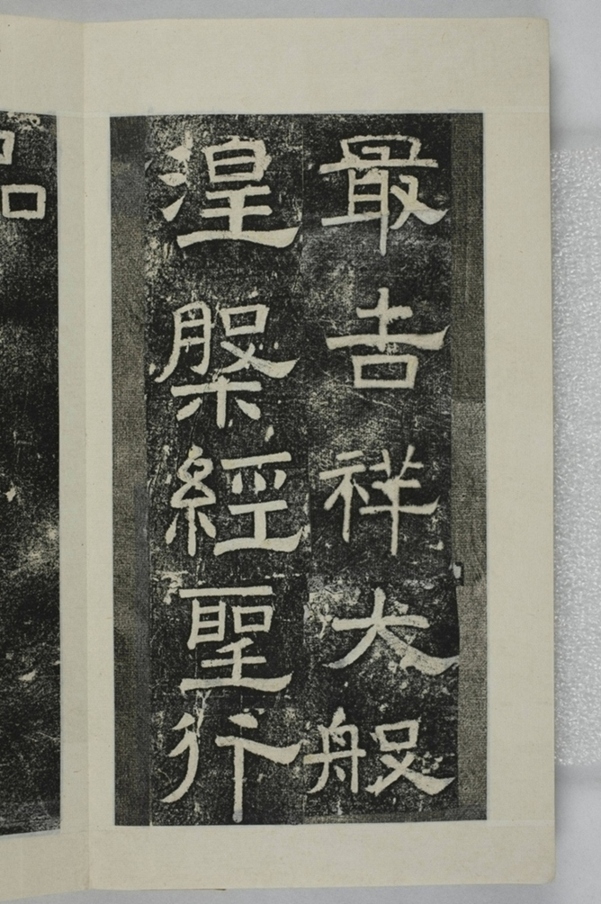 最吉祥大般
涅槃經聖行
品